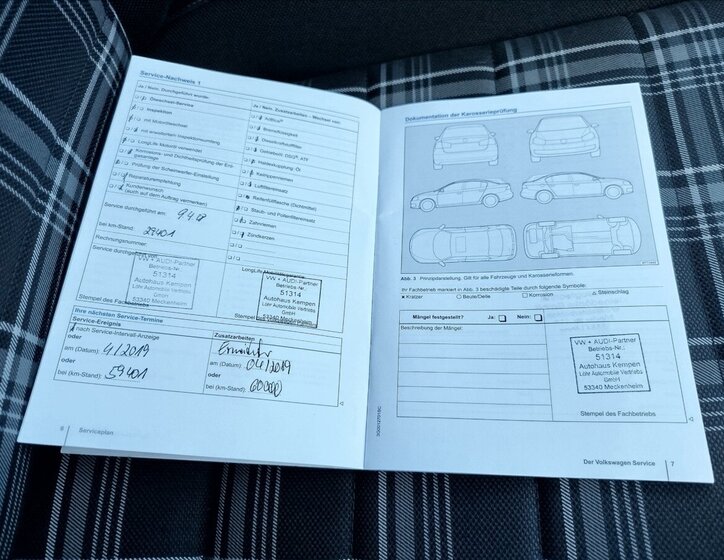 Service-Nachweis 1
Ja / Nein Durchgeführt wurde:
Ölwechsel-Service
Inspektion
mit Motorölwechsel
mit erweitertem Inspektionsumfang
LongLife Motoröl verwendet
Korrosions- und Dichtheitsprüfung der Erdgasanlage
Prüfung der Scheinwerfer-Einstellung
Reparaturempfehlung
Kundenwunsch
(auch auf dem Auftrag vermerken)
Service durchgeführt am:
bei km-Stand: 29401
Rechnungsnummer:
Service durchgeführt von:
VW + AUDI-Partner
Betriebs-Nr.:
51314
Autohaus Kempen
Lohr Automobile Vertriebs
GmbH
53340 Meckenheim
Stempel des Fachbetriebs
Ja / Nein Zusatzarbeiten - Wechsel von:
AdBlue®
Bremsflüssigkeit
Dieselkraftstofffilter
Getriebeöl: DSG®, ATF
Haldexkupplung-Öl
Keilrippenriemen
Luftfiltereinsatz
Reifenfüllflasche (Dichtmittel)
Staub- und Pollenfiltereinsatz
Zahnriemen
Zündkerzen
LongLife Mobilitätsgarantie:
VW + AUDI-Partner
Betriebs-Nr.:
51314
Autohaus Kempen
Lohr Automobile Vertriebs
GmbH
53340 Meckenheim
Ihre nächsten Service-Termine
Service-Ereignis
nach Service-Intervall-Anzeige
oder
am (Datum): 4/2019
oder
bei (km-Stand): 59401
Zusatzarbeiten
am (Datum): 04/2019
oder
bei (km-Stand): 60000
6 Serviceplan
Dokumentation der Karosserieprüfung
Abb. 3 Prinzipdarstellung. Gilt für alle Fahrzeuge und Karosserieformen.
Ihr Fachbetrieb markiert in Abb. 3 beschädigte Teile durch folgende Symbole:
× Kratzer ○ Beule/Delle □ Korrosion △ Steinschlag
Mängel festgestellt? Ja: Nein:
Beschreibung der Mängel:
VW + AUDI-Partner
Betriebs-Nr.:
51314
Autohaus Kempen
Lohr Automobile Vertriebs
GmbH
53340 Meckenheim
Stempel des Fachbetriebs
Der Volkswagen Service 7